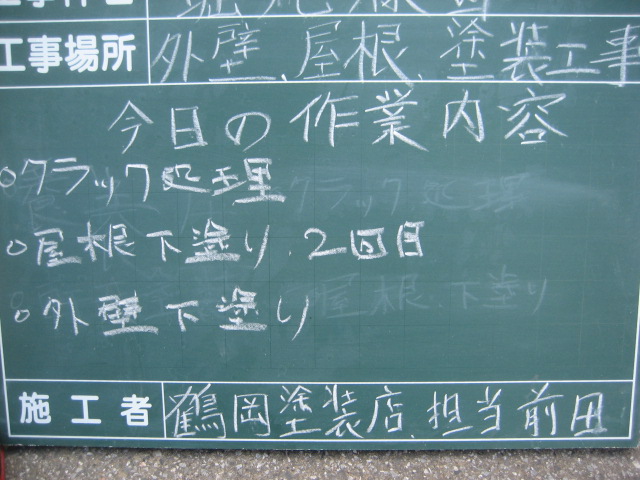 工事場所 外壁、屋根、塗装工事
今日の作業内容
○クラック処理
○屋根下塗り、2回目
○外壁下塗り
施工者 鶴岡塗装店、担当前田